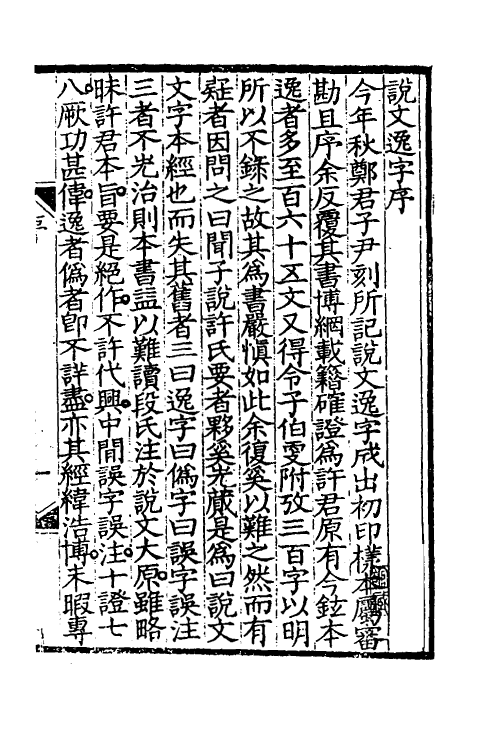 說文逸字序
今年秋鄭君子尹刻所記說文逸字成出初印樣本屬審
勘且序余反覆其書博網載籍確證爲許君原有今鉉本
逸者多至百六十五文又得令子伯更附攷三百字以明
所以不錄之故其爲書嚴慎如此余復奚以難之然而有
疑者因問之曰聞子說許氏要者夥奚先蕆是爲曰說文
文字本經也而失其舊者三曰逸字曰僞字曰誤字誤注
三者不先治則本書益以難讀段氏注於說文大原雖略
昧許君本旨要是絕作不許代興中閒誤字誤注十證七
八厥功甚偉逸者僞者卽不詳盡亦其經緯浩博未暇專
序
一